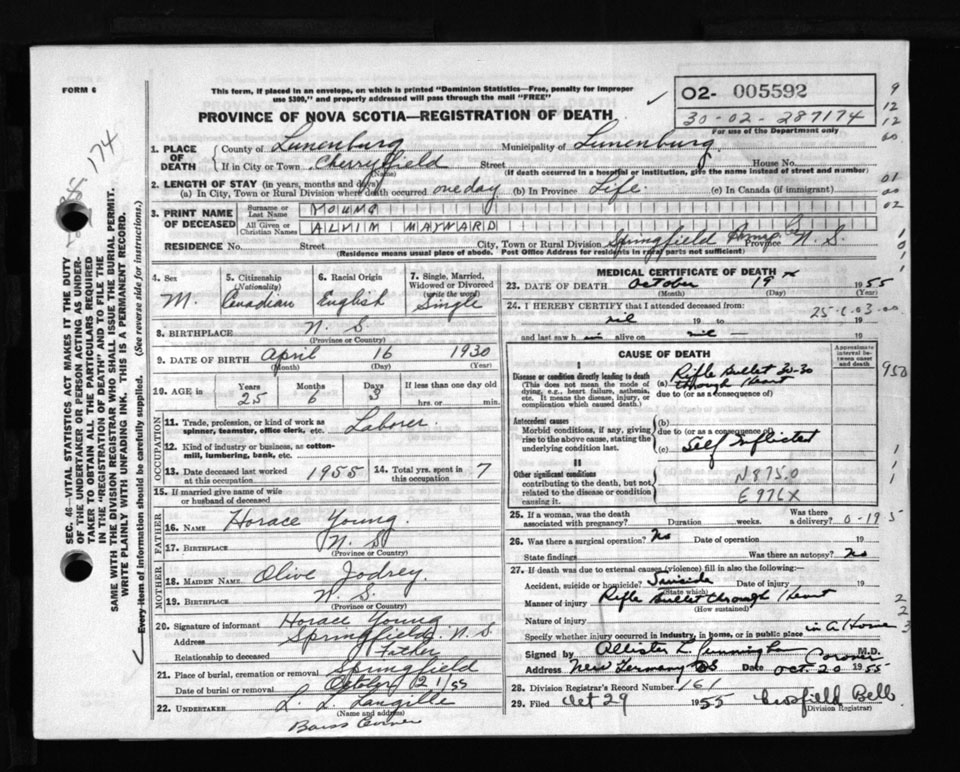 FORM 6
This form, if placed in an envelope, on which is printed "Dominion Statistics—Free, penalty for improper
use $300," and properly addressed will pass through the mail "FREE"
PROVINCE OF NOVA SCOTIA—REGISTRATION OF DEATH
02- 005592
30-02-287174
For use of the Department only
174
1. PLACE OF DEATH
County of Lunenburg Municipality of Lunenburg
If in City or Town Cherryfield Street House No.
(Name) (If death occurred in a hospital or institution, give the name instead of street and number)
2. LENGTH OF STAY (in years, months and days)
(a) In City, Town or Rural Division where death occurred one day (b) In Province Life (c) In Canada (if immigrant)
3. PRINT NAME OF DECEASED
Surname or Last Name YOUNG
All Given or Christian Names ALVIM MAYWARD
RESIDENCE No. Street City, Town or Rural Division Springfield Anna Co Province N. S.
(Residence means usual place of abode. Post Office Address for residents in rural parts not sufficient)
4. Sex M.
5. Citizenship (Nationality) Canadian
6. Racial Origin English
7. Single, Married, Widowed or Divorced (write the word) Single
8. BIRTHPLACE N. S.
(Province or Country)
9. DATE OF BIRTH April 16 1930
(Month) (Day) (Year)
10. AGE in Years Months Days If less than one day old
25 6 3 hrs. or min.
OCCUPATION
11. Trade, profession, or kind of work as spinner, teamster, office clerk, etc. Laborer.
12. Kind of industry or business, as cotton-mill, lumbering, bank, etc.
13. Date deceased last worked at this occupation 1955
14. Total yrs. spent in this occupation 7
15. If married give name of wife or husband of deceased
FATHER
16. NAME Horace Young.
17. BIRTHPLACE N. S
(Province or Country)
MOTHER
18. MAIDEN NAME Olive Jodrey.
19. BIRTHPLACE N. S.
(Province or Country)
20. Signature of informant Horace Young
Address Springfield N. S
Relationship to deceased Father
21. Place of burial, cremation or removal Springfield
Date of burial or removal October 21/55
22. UNDERTAKER L. L. Langille
(Name and address)
Barss Corner
MEDICAL CERTIFICATE OF DEATH
23. DATE OF DEATH October 19 1955
(Month) (Day) (Year)
24. I HEREBY CERTIFY that I attended deceased from:
nil 19 to 19
25-6-03-00
and last saw h alive on nil — 19
CAUSE OF DEATH
Approximate interval between onset and death
I
Disease or condition directly leading to death
(This does not mean the mode of dying, e.g., heart failure, asthenia, etc. It means the disease, injury, or complication which caused death.)
(a) Rifle Bullet 30-30
through Heart
due to (or as a consequence of)
Antecedent causes
Morbid conditions, if any, giving rise to the above cause, stating the underlying condition last.
(b)
due to (or as a consequence of)
(c) Self Inflicted
II
Other significant conditions
contributing to the death, but not related to the disease or condition causing it.
N875.0
E976X
25. If a woman, was the death associated with pregnancy? Duration weeks. Was there a delivery? 0-19
26. Was there a surgical operation? No Date of operation 19
State findings Was there an autopsy? No
27. If death was due to external causes (violence) fill in also the following:—
Accident, suicide or homicide? Suicide Date of injury 19
(State which)
Manner of injury Rifle Bullet through Heart
(How sustained)
Nature of injury
Specify whether injury occurred in industry, in home, or in public place in a Home
Signed by Allister L. Cunningham Coroner M.D.
Address New Germany NS Date Oct. 20 1955
28. Division Registrar's Record Number 161
29. Filed Oct 29 1955 Crosfield Bell
(Division Registrar)
SEC. 46—VITAL STATISTICS ACT MAKES IT THE DUTY
OF THE UNDERTAKER OR PERSON ACTING AS UNDER-
TAKER TO OBTAIN ALL THE PARTICULARS REQUIRED
IN THE "REGISTRATION OF DEATH" AND TO FILE THE
SAME WITH THE DIVISION REGISTRAR WHO SHALL ISSUE THE BURIAL PERMIT.
WRITE PLAINLY WITH UNFADING INK. THIS IS A PERMANENT RECORD.
Every item of information should be carefully supplied. (See reverse side for instructions.)
9
12
12
00
01
00
02
950